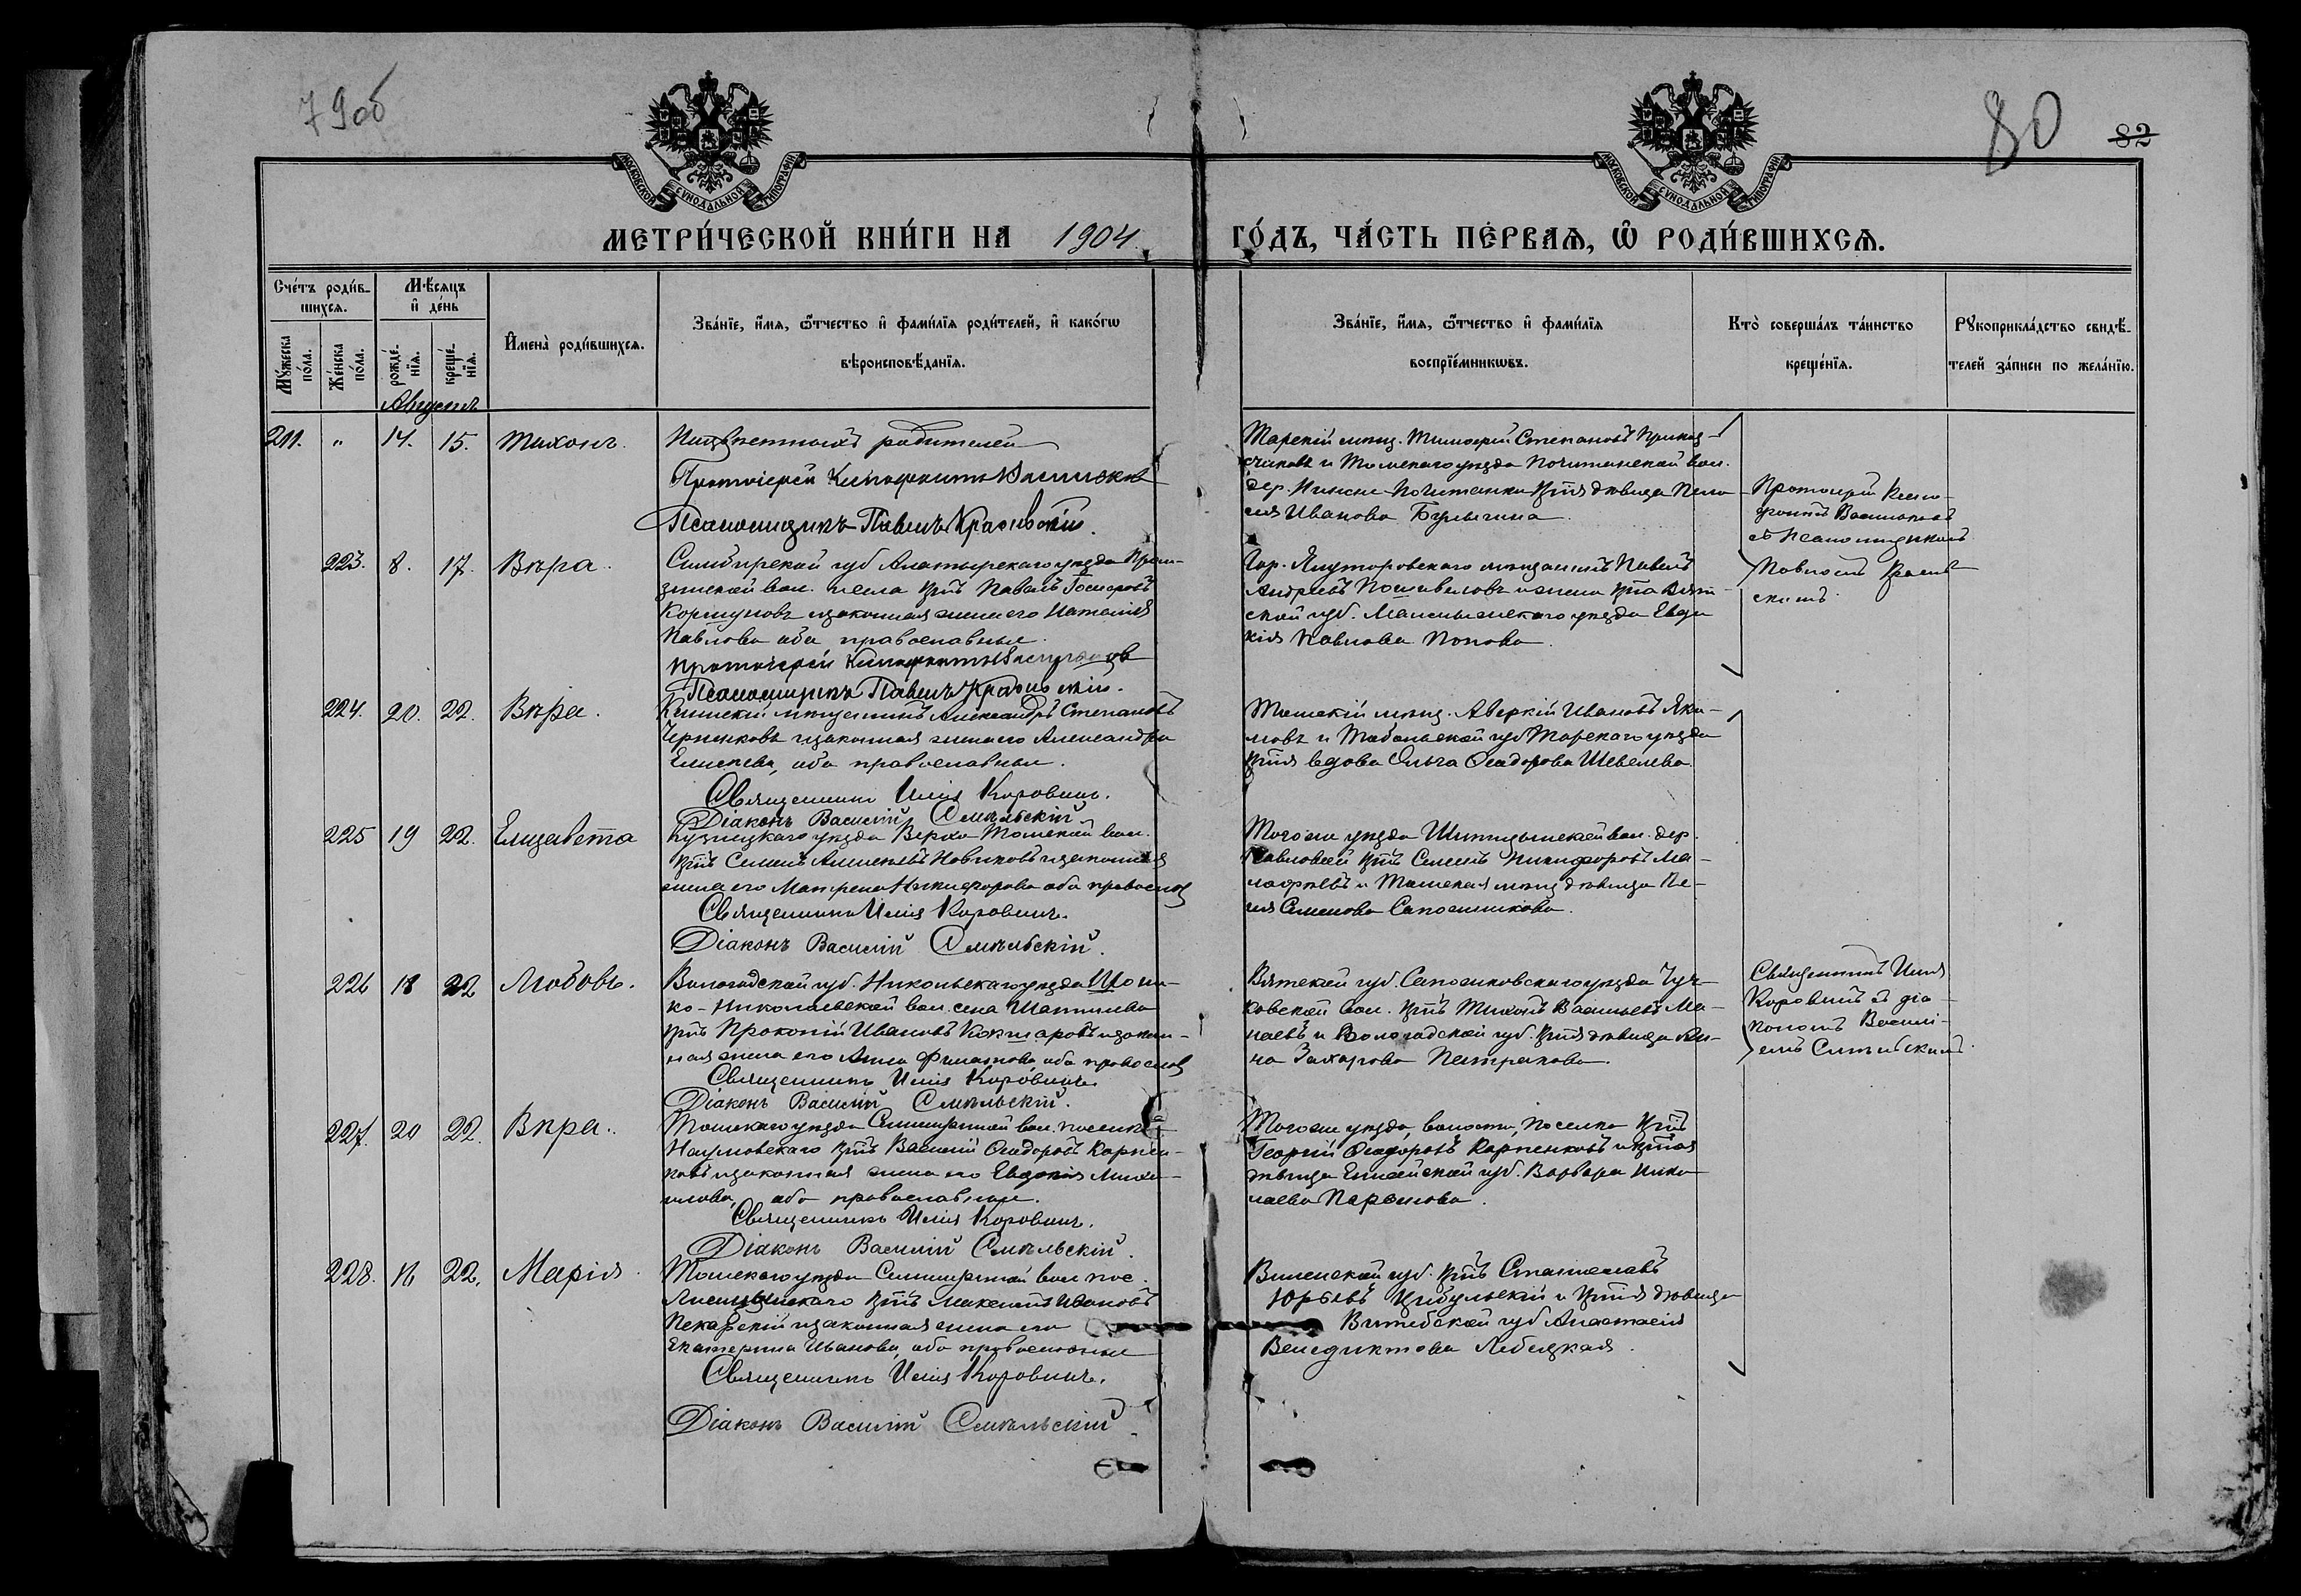 79об
80
82
МОСКОВСКОЙ СѴНОДАЛЬНОЙ ТИПОГРАФІИ
МОСКОВСКОЙ СѴНОДАЛЬНОЙ ТИПОГРАФІИ
МЕТРИ́ЧЕСКОЙ КНИ́ГИ НА 1904 ГО́ДЪ, ЧА́СТЬ ПЕ́РВАѦ, Ѡ҆ РОДИ́ВШИХСѦ.
Сче́тъ роди́в-
шихсѧ.
Мѣ́сѧцъ
и҆ де́нь
Му́жеска
по́ла.
Же́нска
по́ла.
рожде́-
нїѧ.
креще́-
нїѧ.
И҆мена̀ роди́вшихсѧ.
Зва́нїе, и҆́мѧ, ѻ҆́тчество и҆ фами́лїѧ роди́телей, и҆ како́гѡ
вѣроисповѣ́данїѧ.
Зва́нїе, и҆́мѧ, ѻ҆́тчество и҆ фами́лїѧ
воспрїе́мникѡвъ.
Кто̀ соверша́лъ та́инство
креще́нїѧ.
Рꙋкоприкла́дство свидѣ́-
телей за́писи по жела́нїю.
Августъ
211. " 14. 15. Тихонъ.
Неизвѣстныхъ родителей
Протоіерей Ксенофонтъ Васильковъ
Псаломщикъ Павелъ Красивскій.
Тарскій мѣщ. Тимофей Степановъ Приказ-
счиковъ и Томскаго уѣзда Почитанской вол.
дер. Нижне-Почитанки кр̃ня дѣвица Пела-
гія Иванова Бурыгина.
Протоіерей Ксено-
фонтъ Васильковъ
съ Псаломщикомъ
Павломъ Красив-
скимъ.
223. 8. 17. Вѣра.
Симбирской губ Алатырскаго уѣзда Пром-
зинской вол. села кр̃нъ Павелъ
Коршуновъ и законная жена его Наталія
Павлова оба православные.
Протоіерей Ксенофонтъ Васильковъ
Псаломщикъ Павелъ Красивскій.
Гор. Ялуторовскаго мѣщанинъ Павелъ
Андреевъ и жена кр̃на Вят-
ской губ. Малмыжскаго уѣзда Евдо
кія Павлова Попова.
224. 20. 22. Вѣра.
мѣщанинъ Александръ Степановъ
Черпаковъ и законная жена его Александра
Елисеева, оба православные.
Священникъ Илія Коровинъ.
Діаконъ Василій Смѣльскій
Томскій мѣщ. Аверкій Ивановъ Яки-
мовъ и Тобольской губ Тарскаго уѣзда
кр̃ня вдова Ольга Ѳеодорова Шевелева.
225 19 22. Елизавета
Кузнецкаго уѣзда Верхо Томской вол.
кр̃нъ Семенъ Алексѣевъ Новиковъ и законная
жена его Матрена Никифорова оба православ
Священникъ Илія Коровинъ.
Діаконъ Василій Смѣльскій.
Того же уѣзда вол. дер.
Павловой кр̃нъ Семенъ Никифоровъ Ма-
лафѣевъ и Томская мѣщ дѣвица
Семенова Сапожникова.
226 18 22 Любовь.
Вологодской губ. Никольскаго уѣзда
ко-Николаевской вол. села Шатенево
кр̃нъ Прокопій Ивановъ Кокшаровъ и закон-
ная жена его Анна Филатова оба православ
Священникъ Илія Коровинъ.
Діаконъ Василій Смѣльскій.
Вятской губ. Сапожковскаго уѣзда
ковской вол. кр̃нъ Тихонъ Васильевъ Ма-
наевъ и Вологодской губ. кр̃ня дѣвица Ан-
на Захарова Петракова.
Священникъ Илія
Коровинъ съ діа-
кономъ Василі-
емъ Смѣльскимъ
227. 20 22. Вѣра.
Томскаго уѣзда Семилужной вол. поселка
Наумовскаго кр̃нъ Василій Ѳеодоровъ Карпен-
ковъ и законная жена его Евдокія Михаи-
лова, оба православные.
Священникъ Илія Коровинъ.
Діаконъ Василій Смѣльскій.
Того же уѣзда, волости, поселка кр̃нъ
Георгій Ѳеодоровъ Карпенковъ и кр̃ная
дѣвица Енисейской губ. Варвара Нико-
лаева
228. 16 22. Марія.
Томскаго уѣзда Семилужной вол пос.
кр̃нъ Максимъ Ивановъ
Пекарскій и законная жена его
Екатерина Иванова, оба православные
Священникъ Илія Коровинъ.
Діаконъ Василій Смѣльскій.
Виленской губ. кр̃нъ Станиславъ
Юрьевъ Цибульскій и кр̃ня дѣвица
Витебской губ Анастасія
Венедиктова